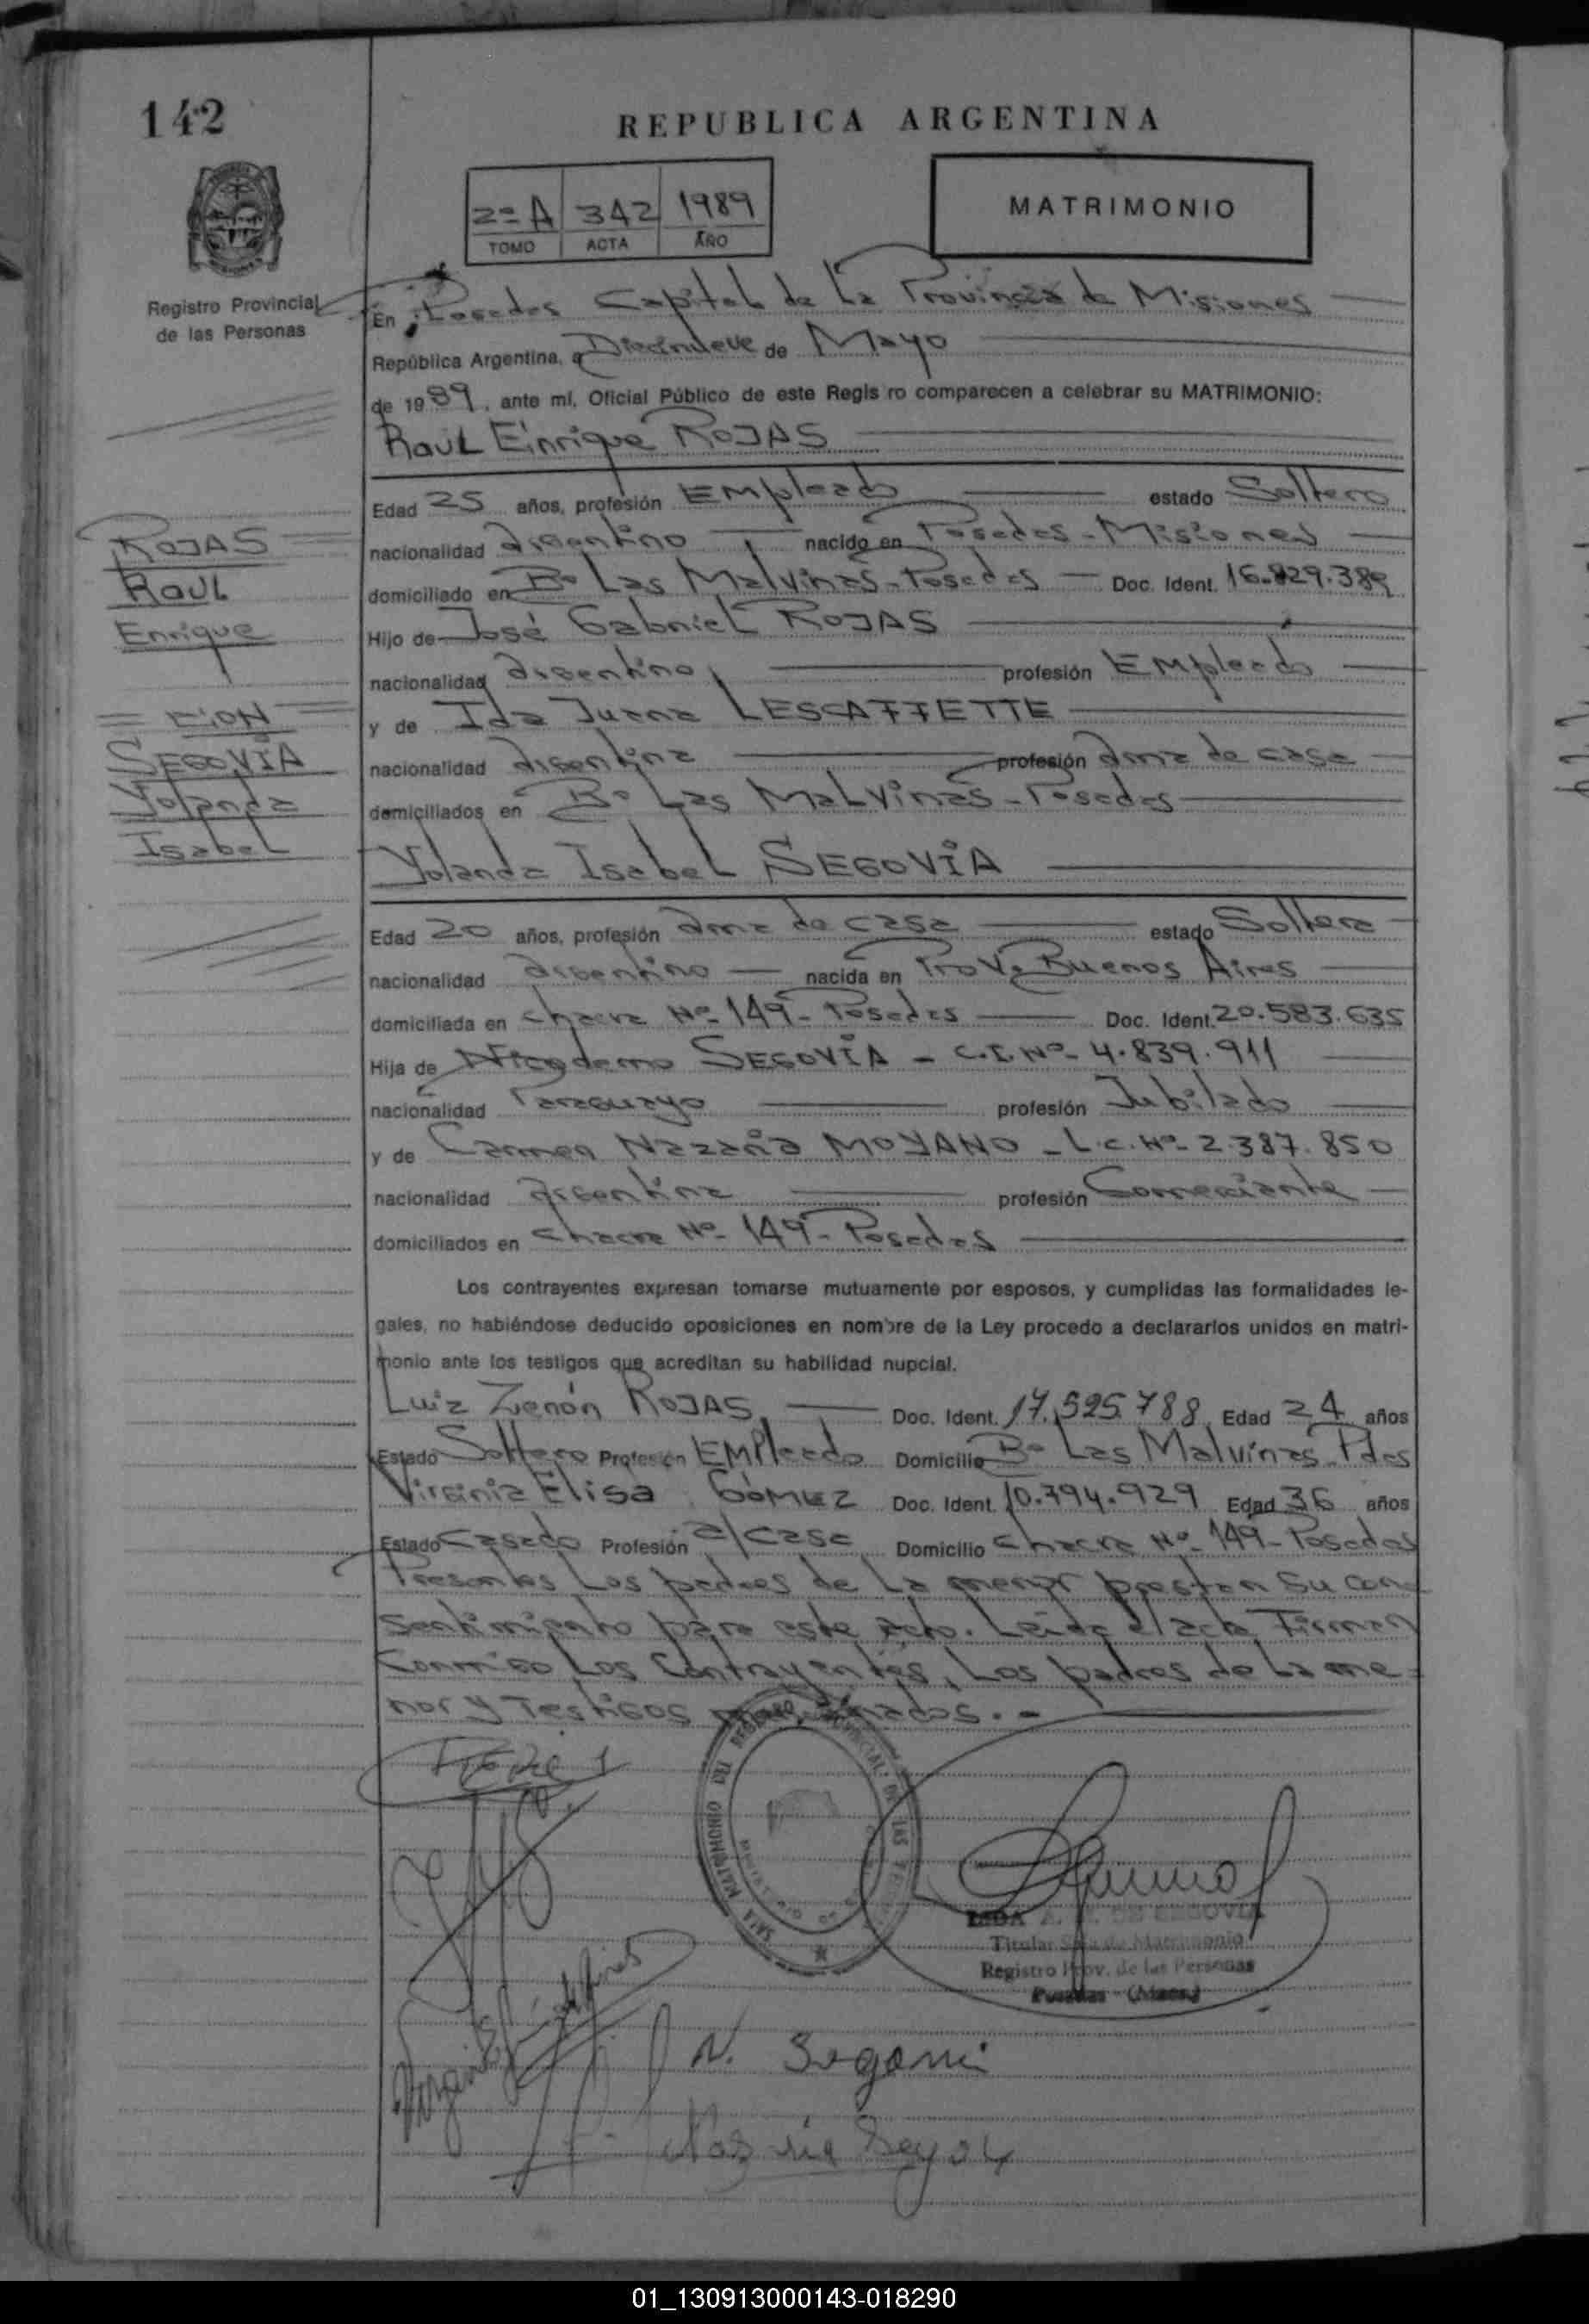 142
REPUBLICA ARGENTINA
2º A 342 1989
TOMO ACTA AÑO
MATRIMONIO
Registro Provincial
de las Personas
En Posadas Capital de la Provincia de Misiones
República Argentina, a Diecinueve de Mayo
de 1989, ante mí, Oficial Público de este Regis ro comparecen a celebrar su MATRIMONIO:
Raul Enrique ROJAS
Edad 25 años, profesión Empleado estado Soltero
nacionalidad argentino nacido en Posadas - Misiones
domiciliado en Bº Las Malvinas - Posadas Doc. Ident. 16.829.389
Hijo de José Gabriel ROJAS
nacionalidad argentino profesión Empleado
y de Ida Juana LESCAFFETTE
nacionalidad argentina profesión ama de casa
domiciliados en Bº Las Malvinas - Posadas
Yolanda Isabel SEGOVIA
ROJAS
Raul
Enrique
CON
SEGOVIA
Yolanda
Isabel
Edad 20 años, profesión ama de casa estado Soltera
nacionalidad argentino nacida en Prov. Buenos Aires
domiciliada en chacra Nº 149 - Posadas Doc. Ident. 20.583.635
Hija de Nicodemo SEGOVIA - C.I. Nº 4.839.911
nacionalidad Paraguayo profesión Jubilado
y de Carmen Nazaria MOYANO - L.C. Nº 2.387.850
nacionalidad argentina profesión Comerciante
domiciliados en chacra Nº 149 - Posadas
Los contrayentes expresan tomarse mutuamente por esposos, y cumplidas las formalidades le-
gales, no habiéndose deducido oposiciones en nombre de la Ley procedo a declararlos unidos en matri-
monio ante los testigos que acreditan su habilidad nupcial.
Luiz Zenón ROJAS Doc. Ident. 17.525.788 Edad 24 años
Estado Soltero Profesión Empleado Domicilio Bº Las Malvinas - Pdas
Virginia Elisa GÓMEZ Doc. Ident. 10.794.929 Edad 36 años
Estado Casado Profesión a/casa Domicilio chacra Nº 149 - Posadas
Presentes los padres de la menor prestan su con
sentimiento para este acto. Leida el acta, Firman
Conmigo los Contrayentes, los padres de la me=
nor y Testigos
SALA MATRIMONIO DEL REGISTRO PROVINCIAL DE LAS
DE SEGOVIA
Titular Sala de Matrimonio
Registro Prov. de las Personas
Posadas - (Mnes.)
N. Segovia
01_130913000143-018290